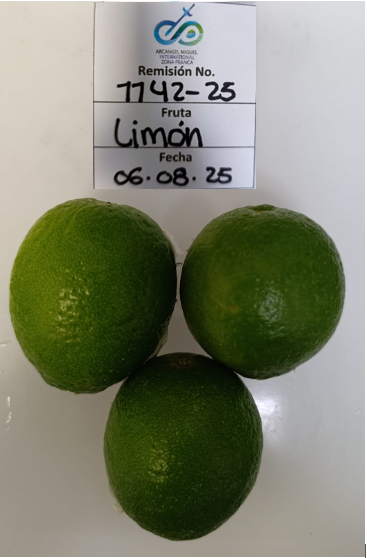 ARCANGEL MIGUEL
INTERNATIONAL
ZONA FRANCA
Remisión No.
7742-25
Fruta
Limón
Fecha
06.08.25